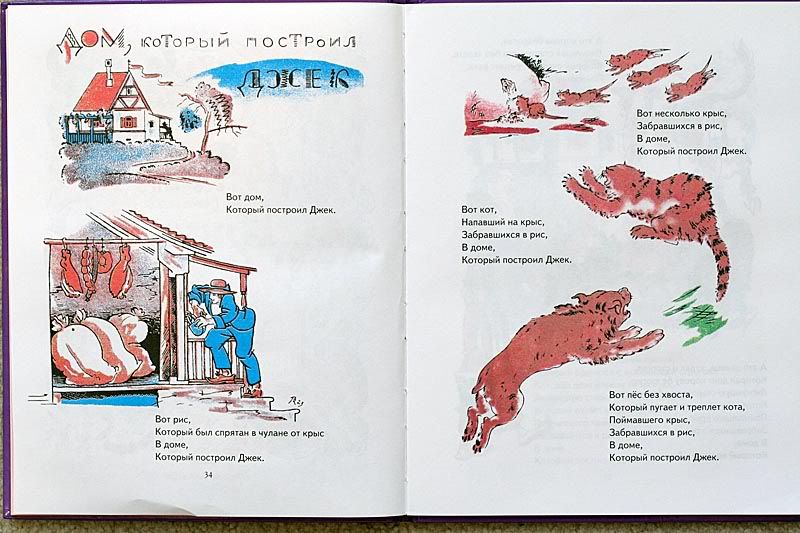 ДОМ, КОТОРЫЙ ПОСТРОИЛ
ДЖЕК
Вот дом,
Который построил Джек.
Вот рис,
Который был спрятан в чулане от крыс
В доме,
Который построил Джек.
34
Вот несколько крыс,
Забравшихся в рис,
В доме,
Который построил Джек.
Вот кот,
Напавший на крыс,
Забравшихся в рис,
В доме,
Который построил Джек.
Вот пёс без хвоста,
Который пугает и треплет кота,
Поймавшего крыс,
Забравшихся в рис,
В доме,
Который построил Джек.